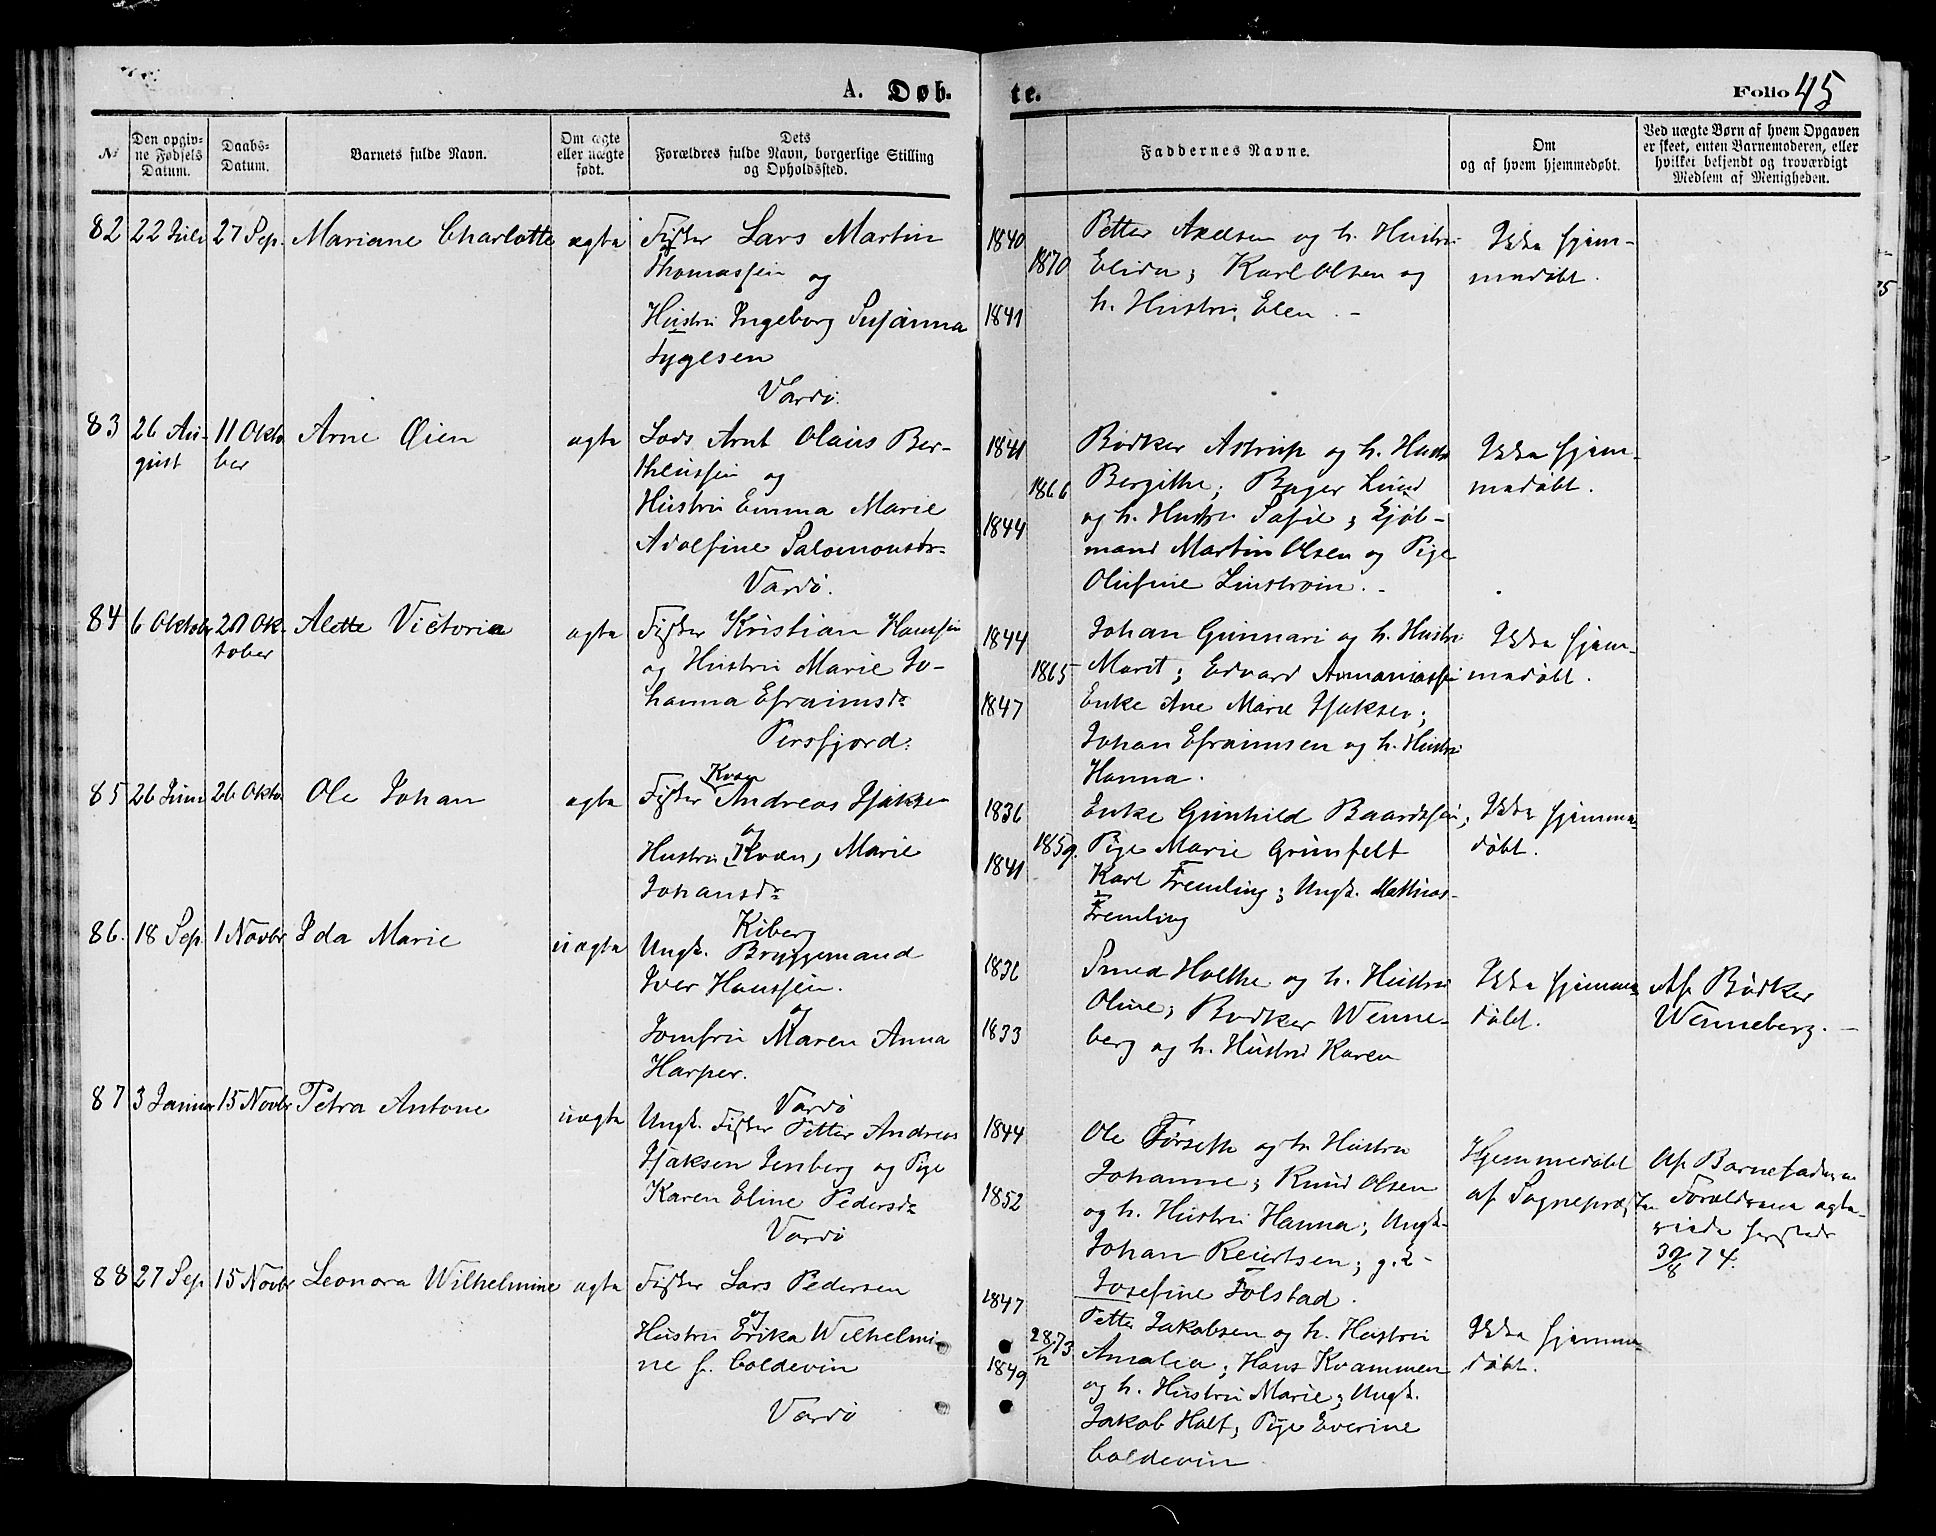 A. Døb.
te.
Folio 45
№
Den opgiv-
ne Fødsels
Datum.
Daabs-
Datum.
Barnets fulde Navn.
Om ægte
eller uægte
født.
Dets
Forældres fulde Navn, borgerlige Stilling
og Opholdssted.
Faddernes Navne.
Om
og af hvem hjemmedøbt.
Ved uægte Børn af hvem Opgaven
er skeet, enten Barnemoderen, eller
hvilket bekjendt og troværdigt
Medlem af Menigheden.
82 22 Juli 27 Sep. Mariane Charlotte ægte
Fisker Lars Martin
Thomassen og
Hustru Ingeborg Susanna
Tygesen
Vardø.
1840
1870
1841
Petter Axelsen og h. Hustru
Elida; Karl Olsen og
h. Hustru Elen. -
Ikke hjem-
medøbt.
83 26 Au-
gust
11 Okto
ber
Arne Øien
ægte
Lods Arnt Olaus Ber-
theussen og
Hustru Emma Marie
Adolfine Salomonsdr
Vardø.
1841
1866
1844
Bødker Astrup og h. Hustr
Bergithe; Bager Lund
og h. Hustru Sofie; Ejøb-
mand Martin Olsen og Pige
Olufine Linstrøm. -
Ikke hjem-
medøbt.
84 6 Oktober 20 Ok-
tober
Alette Victoria
ægte
Fisker Kristian Hanssen
og Hustru Marie Jo-
hanna Efraimsdr
Persfjord.
1844
1865
1847
Johan Gunnari og h. Hustru
Marit; Edvard Annaniassen
Enke Ane Marie Isaksen;
Johan Efraimsen og h. Hustru
Hanna.
Ikke hjem-
medøbt.
85 26 Juni 26 Okto. Ole Johan
ægte
Kvæn
Fisker Andreas Isaksen
og
Hustru (Kvæn) Marie
Johansdr
Kiberg
1836
1859.
1841
Enke Gunhild Baardsen;
Pige Marie Grünfelt
Karl Fremling; Ungk. Mathias
Fremling
Ikke hjemme-
døbt.
86. 18 Sep. 1 Novbr Ida Marie
uægte
Ungk. Bryggemand
Iver Hanssen.
og
Jomfru Maren Anna
Harper.
Vardø
1836
1833
Smed Holthe og h. Hustru
Oline; Bødker Wenne-
berg og h. Hustru Karen
Ikke hjemme-
døbt.
Af Bødker
Wenneberg. -
87 3 Januar 15 Novbr Petra Antone
uægte
Ungk. Fisker Petter Andreas
Isaksen Isnberg og Pige
Karen Eline Pedersdr
Vardø
1844
1852
Ole Forseth og h. Hustru
Johanne; Knud Olsen
og h. Hustru Hanna; Ungk.
Johan Reiertsen; g. k-
Josefine Folstad.
Hjemmedøbt
af Sognepræsten
Af Barnefaderen
Forældrene ægte-
viede
30/8 74.
88 27 Sep 15 Novbr Leonora Wilhelmine ægte
Fisker Lars Pedersen
og
Hustru Erika Wilhelmi-
ne f. Coldevin
Vardø
1847
28/12 73
1849
Petter Jakobsen og h. Hustru
Amalia; Hans Kvammen
og h. Hustru Marie; Ungk.
Jakob Holt; Pige Everine
Coldevin
Ikke hjemme-
døbt.